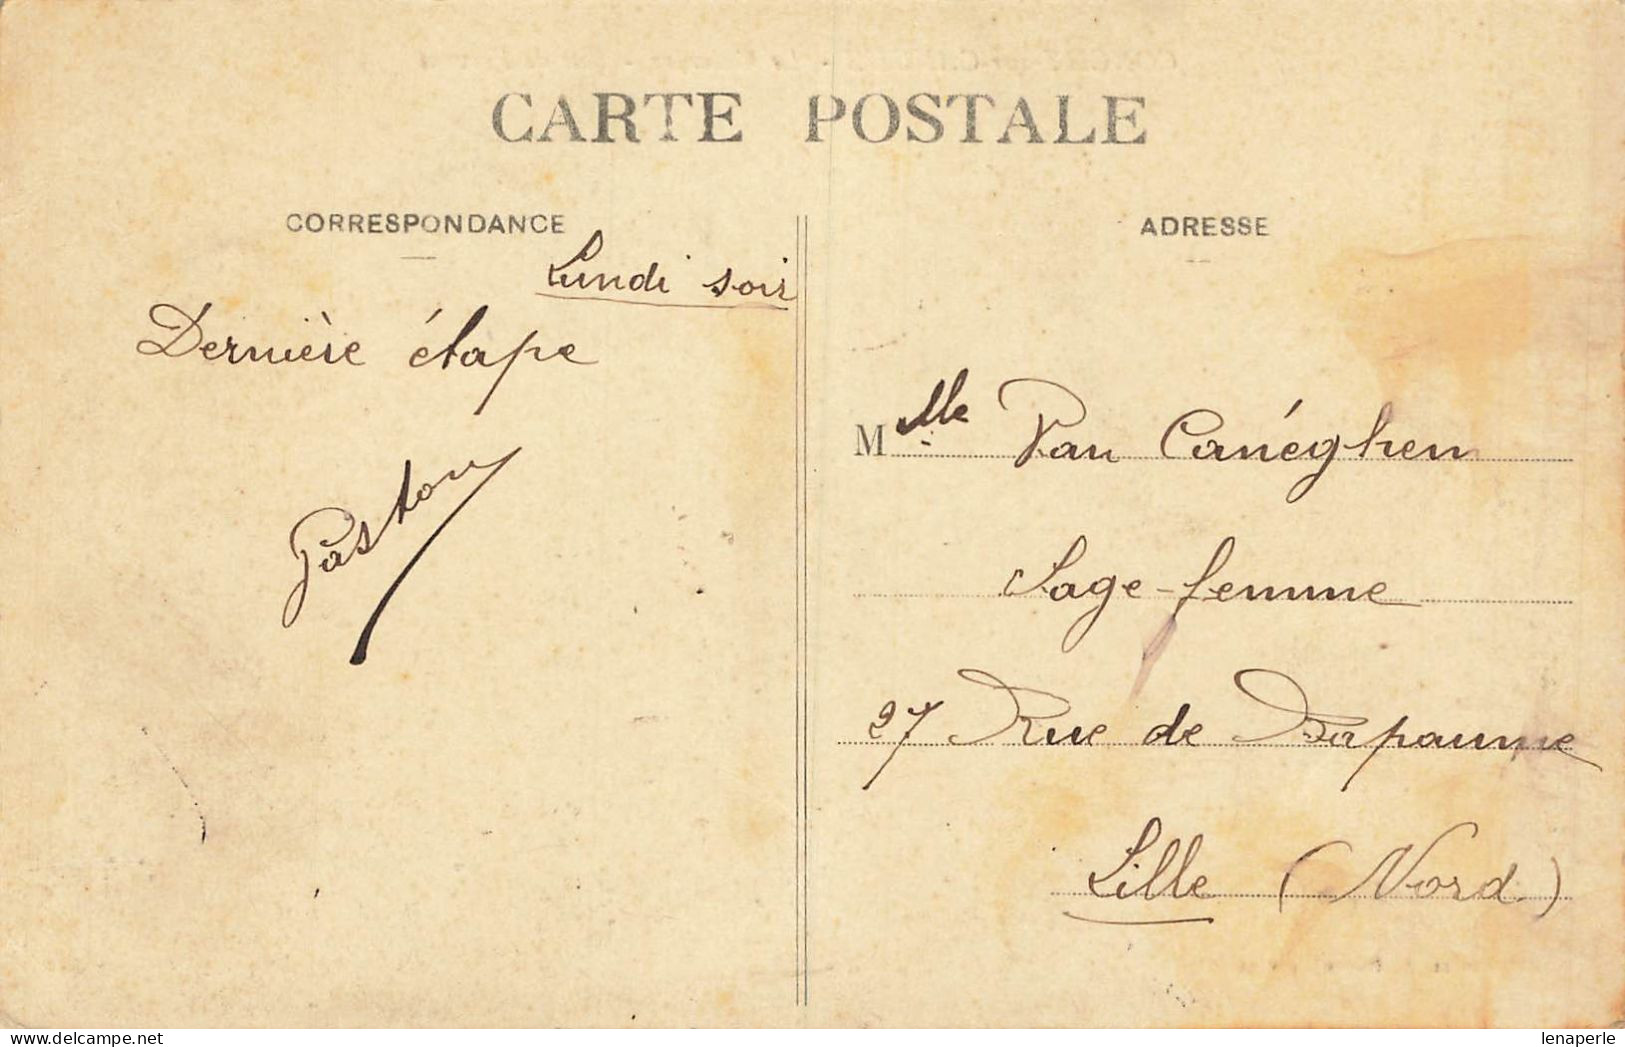 CARTE POSTALE
CORRESPONDANCE
Lundi soir
Dernière étape
Gaston
ADRESSE
Mlle Van Canéghem
Sage-femme
27 Rue de Bapaume
Lille (Nord)
lenaperle